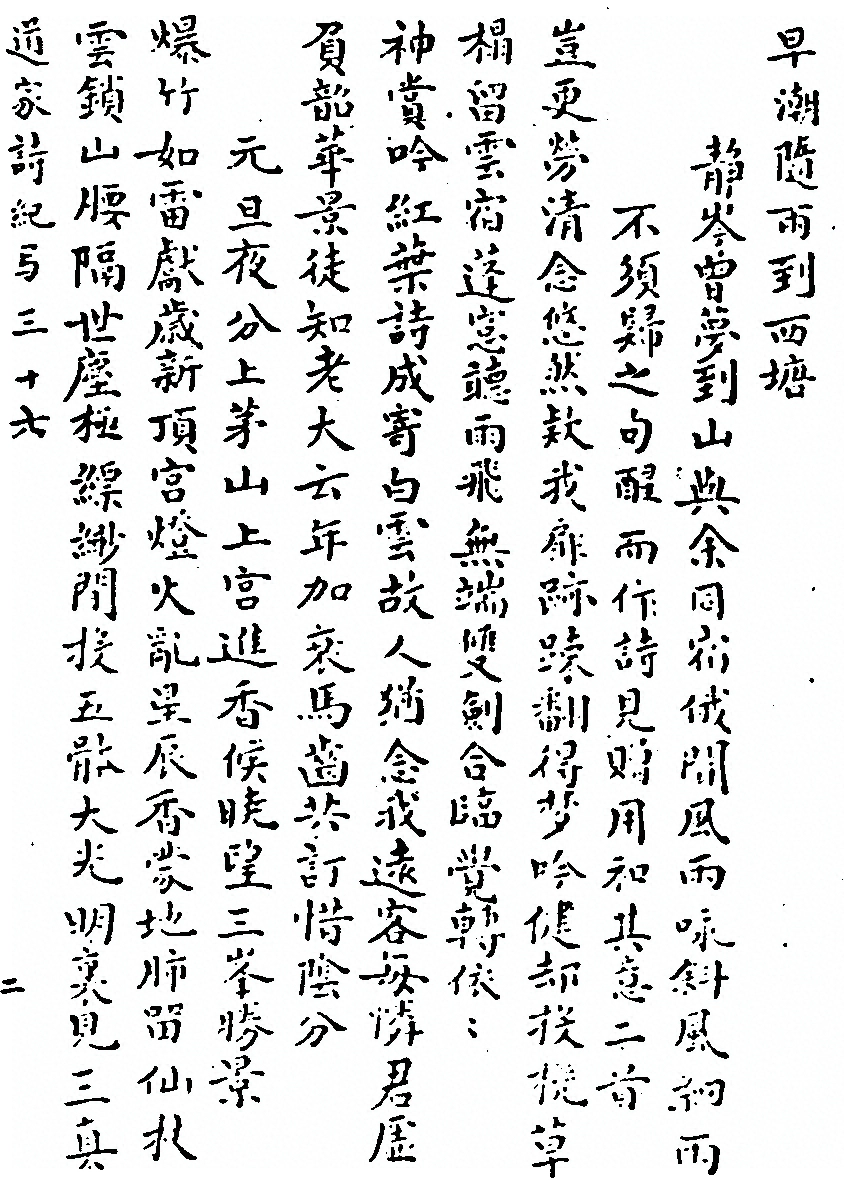 早潮隨雨到西塘
靜岑曾夢到山與余同宿俄聞風雨咏斜風細雨
不須歸之句醒而作詩見贈用和其意二首
豈更勞清念悠然款我扉跡踈翻得梦吟健却機草
榻留雲宿蓬窓聽雨飛無端雙劍合臨覺轉依〻
神賞吟紅葉詩成寄白雲故人猶念我遠客每憐君虛
負韶華景徒知老大云年加衰馬齒共訂惜陰分
元旦夜分上茅山上宮進香候曉望三峯勝景
爆竹如雷獻歲新頂宮燈火亂星辰香蒙地肺留仙杖
雲鎖山腰隔世塵極縹緲間五大光明裏見三真
道家詩紀弓三十六
二